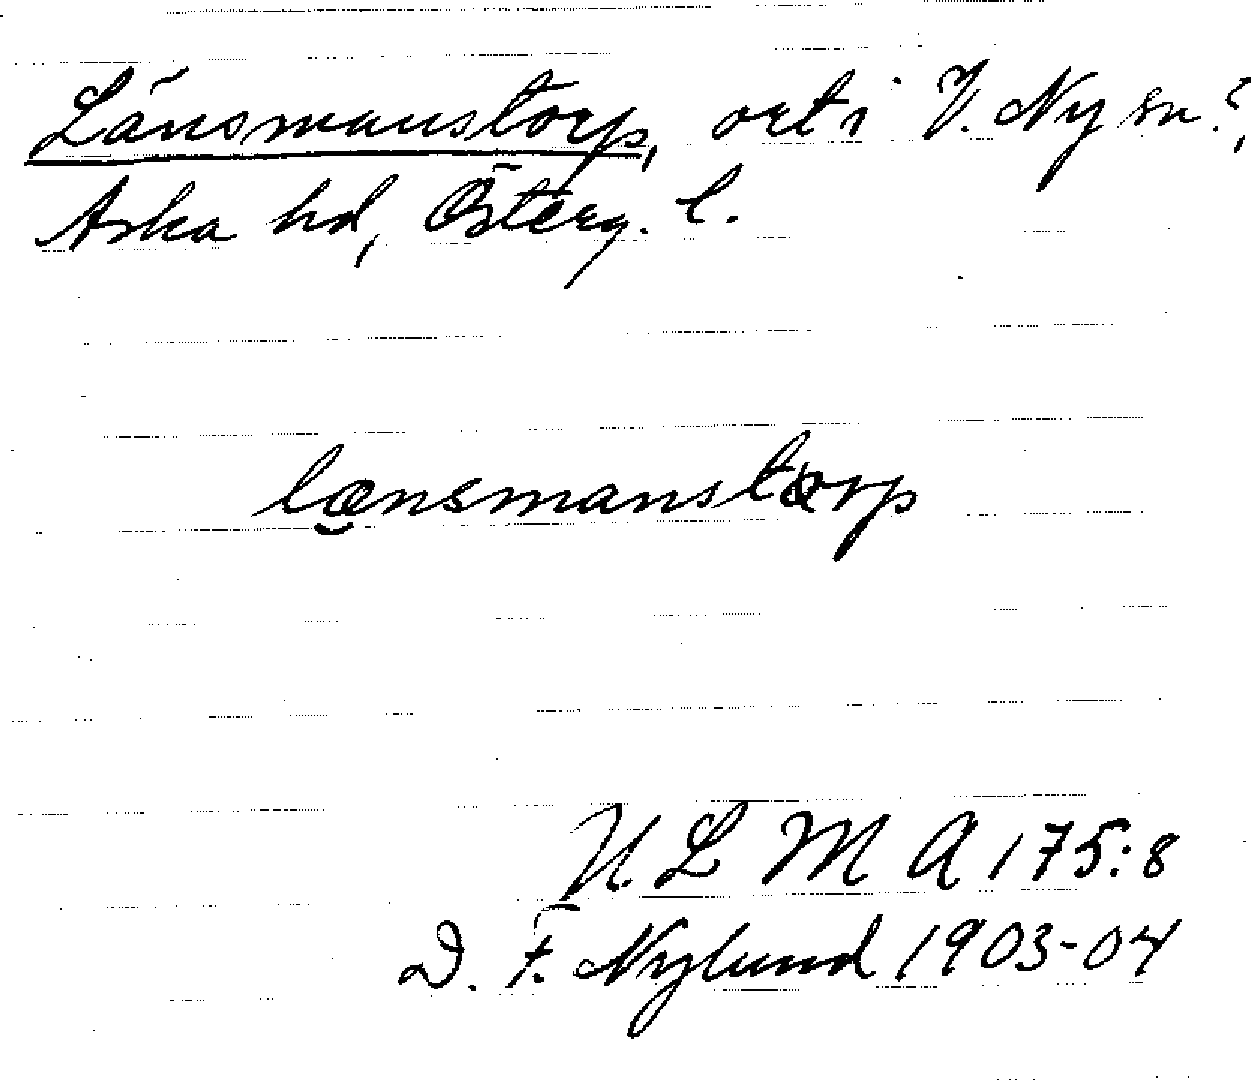 Länsmanstorp, ort i V. Ny sn?,
Aska hd, Österg. l.
lænsmanstorp
U. L M A 175:8
D. F. Nylund 1903-04